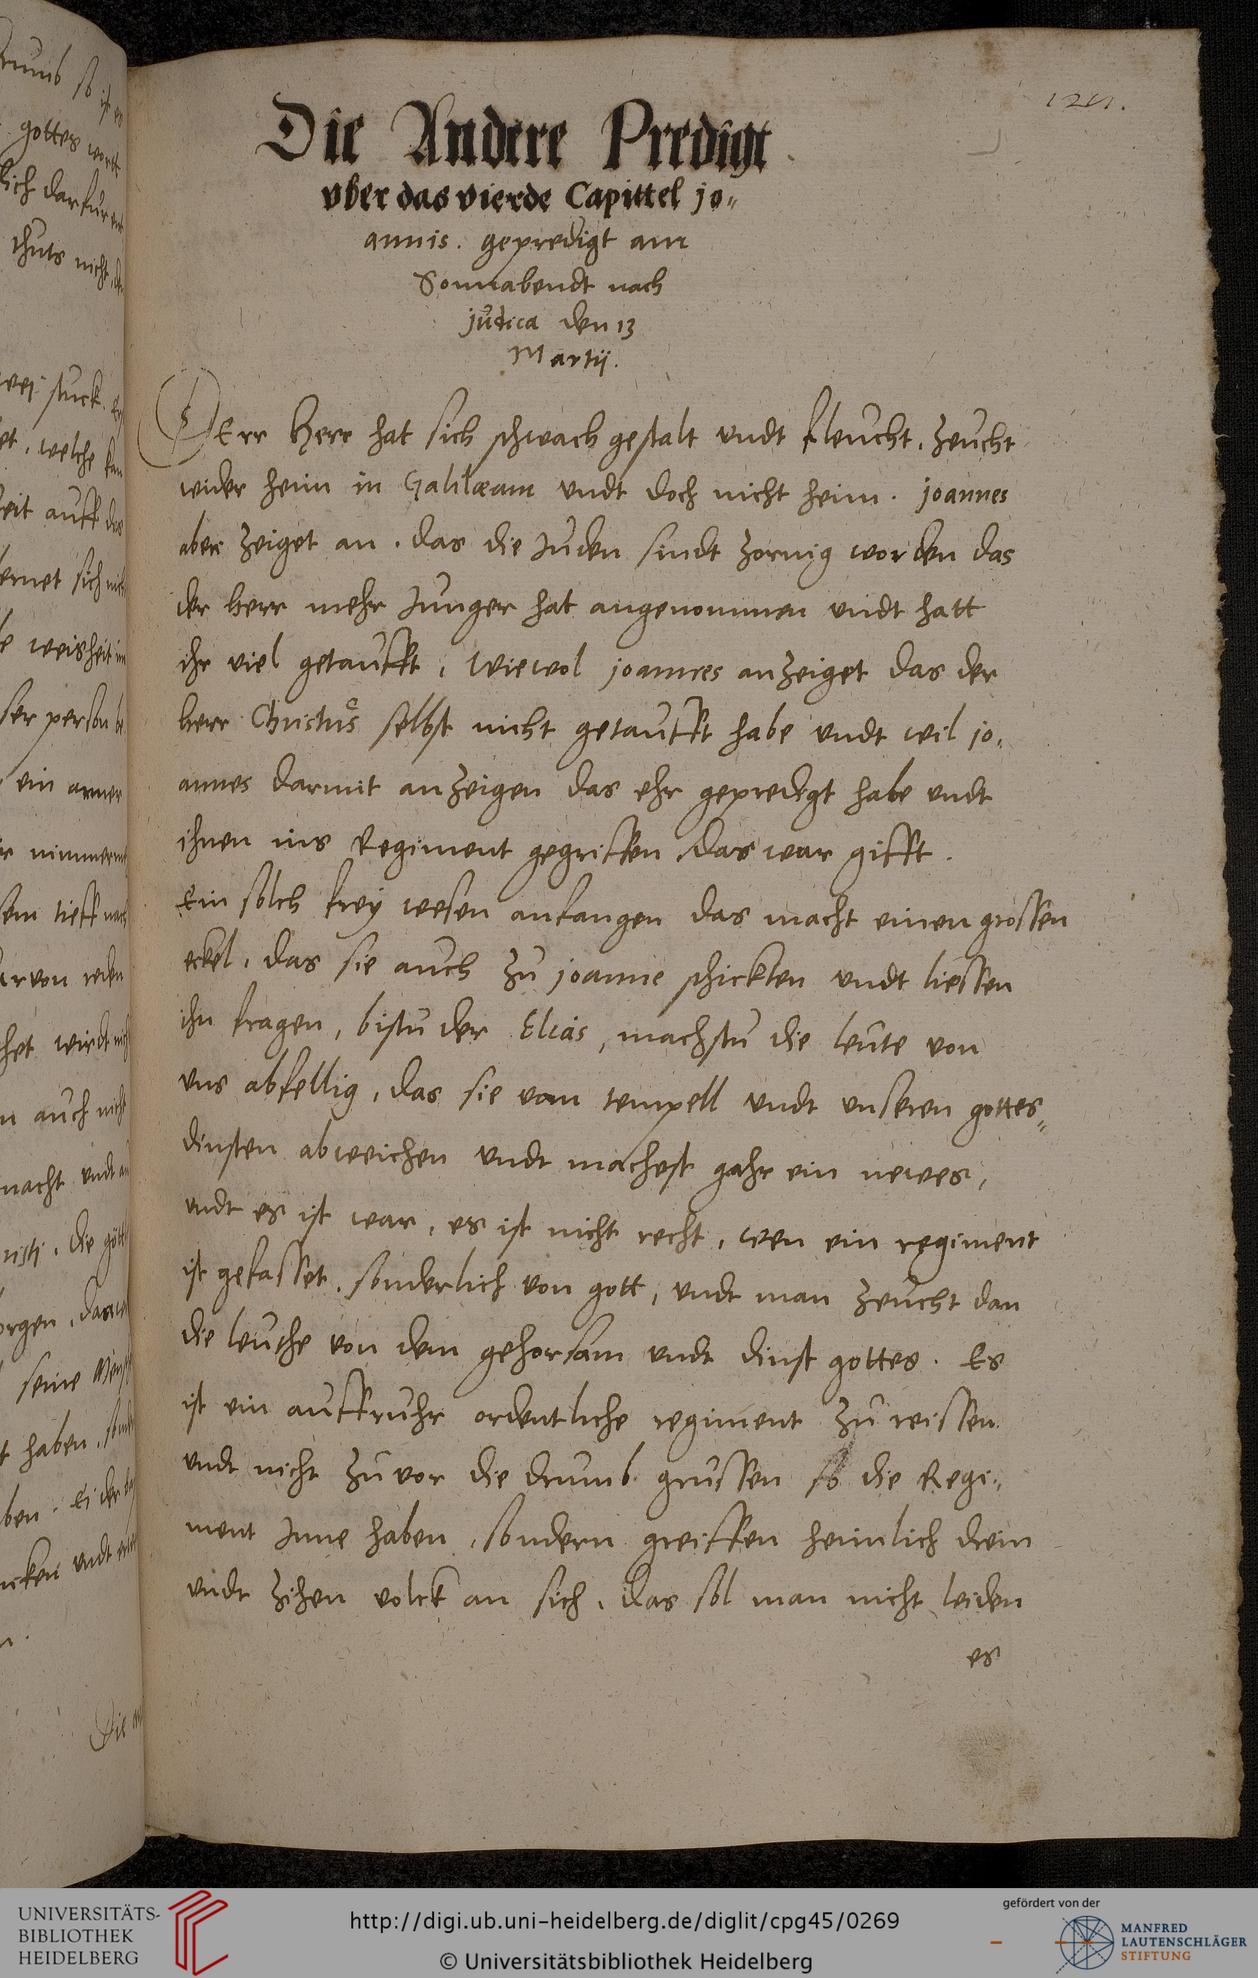 Die Andere Predigt
vber das vierde Capittel jo-
annis. gepredigt am
Sonnabendt nach
judica den 13
Martij.
DErr Herr hat sich schwach gestalt vndt fleucht, zeucht
wider heim in Galilæam vndt doch nicht heim. joannes
aber zeiget an. das die Juden sindt zornig worden das
der herr mehr Junger hat angenommen vndt hatt
ihr viel getaufft, wiewol joannes anzeiget das der
herr Christus selbst nicht getaufft habe vndt wil jo,
annes darmit anzeigen das ehr gepredigt habe vndt
ihnen ins Regiment gegriffen das war gifft.
Ein solch frey wesen anfangen das macht einen grossen
eckel, das sie auch zu joanne schickten vndt liessen
ihn fragen, bistu der Elias, machstu die leute von
vns abfellig, das sie vom tempell vndt vnseren gottes-
dinsten abweichen vndt machest gahr ein newes,
vndt es ist war, es ist nicht recht, wen ein regiment
ist gefasset, sonderlich von gott, vndt man zeucht dan
die leuthe von dem gehorsam vndt dinst gottes. Es
ist ein auffruhr ordentliche regiment zu reissen
vndt nicht zuvor die drumb grussen so die Regi-
ment Inne haben, sondern greiffen heimlich drein
vndt zihen volck an sich, das sol man nicht leiden
es
gottes wortt
thuts nicht
stuck
welche
weisheit
person
ein armer
tieff
wirdt
auch nicht
vndt
seine
haben
UNIVERSITÄTS-
BIBLIOTHEK
HEIDELBERG
http://digi.ub.uni-heidelberg.de/diglit/cpg45/0269
© Universitätsbibliothek Heidelberg
gefördert von der
MANFRED
LAUTENSCHLÄGER
STIFTUNG